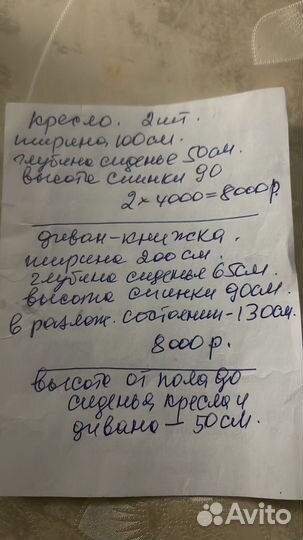 кресло. 2шт.
ширина 100см.
глубина сиденье 50см.
высота спинки 90
2×4000=8000р.
диван-книжка.
ширина 200см.
глубина сиденье 65см.
высота спинки 90см.
в разлож. состоянии-130см.
8000р.
высота от пола до
сиденья, кресла и
дивана — 50см.
Avito